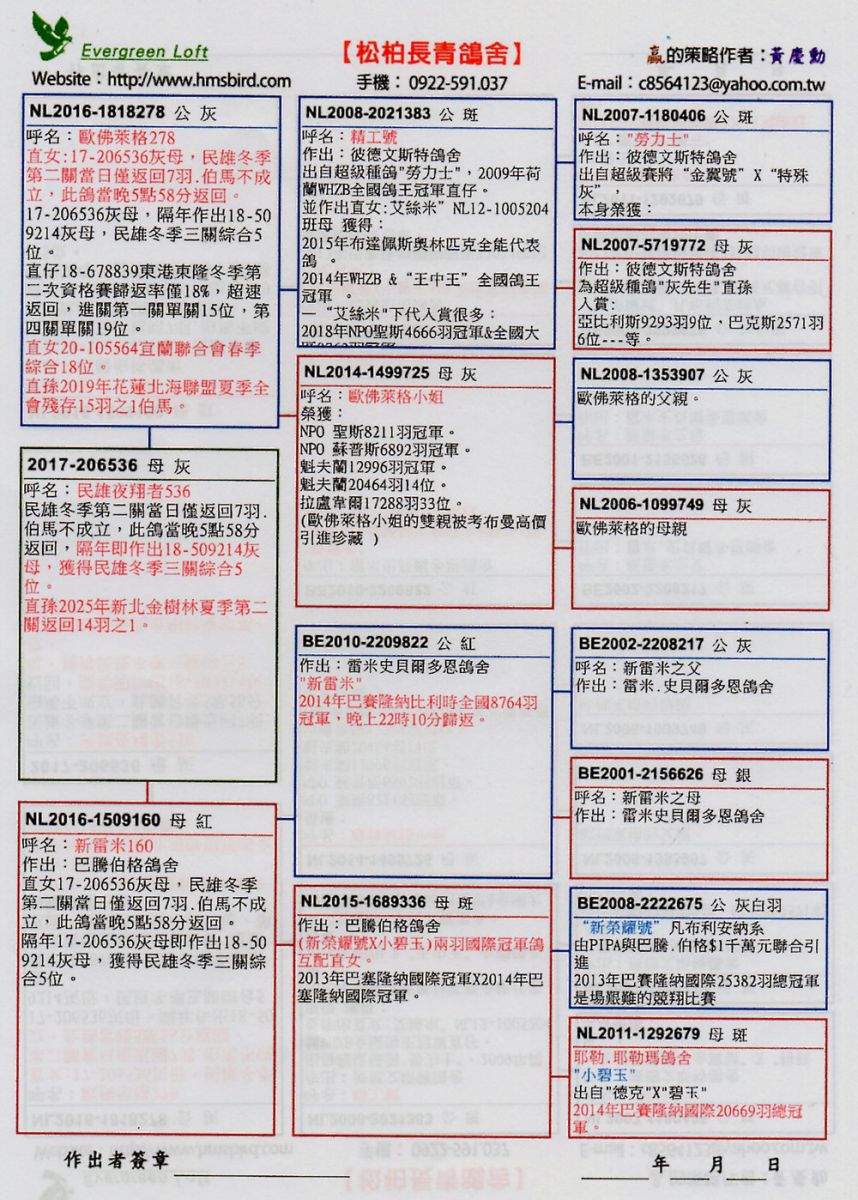 Evergreen Loft
【松柏長青鴿舍】
贏的策略作者：黃慶勳
Website：http://www.hmsbird.com
手機： 0922-591.037
E-mail：c8564123@yahoo.com.tw
NL2016-1818278 公 灰
呼名：歐佛萊格278
直女:17-206536灰母，民雄冬季
第二關當日僅返回7羽.伯馬不成
立，此鴿當晚5點58分返回。
17-206536灰母，隔年作出18-50
9214灰母，民雄冬季三關綜合5
位。
直仔18-678839東港東隆冬季第
二次資格賽歸返率僅18%，超速
返回，進關第一關單關15位，第
四關單關19位。
直女20-105564宜蘭聯合會春季
綜合18位。
直孫2019年花蓮北海聯盟夏季全
會殘存15羽之1伯馬。
2017-206536 母 灰
呼名：民雄夜翔者536
民雄冬季第二關當日僅返回7羽.
伯馬不成立，此鴿當晚5點58分
返回，隔年即作出18-509214灰
母，獲得民雄冬季三關綜合5
位。
直孫2025年新北金樹林夏季第二
關返回14羽之1。
NL2016-1509160 母 紅
呼名：新雷米160
作出：巴騰伯格鴿舍
直女17-206536灰母，民雄冬季
第二關當日僅返回7羽.伯馬不成
立，此鴿當晚5點58分返回。
隔年17-206536灰母即作出18-50
9214灰母，獲得民雄冬季三關綜
合5位。
NL2008-2021383 公 斑
呼名：精工號
作出：彼德文斯特鴿舍
出自超級種鴿"勞力士"，2009年荷
蘭WHZB全國鴿王冠軍直仔。
並作出直女:艾絲米”NL12-1005204
班母 獲得：
2015年布達佩斯奧林匹克全能代表
鴿 。
2014年WHZB &“王中王” 全國鴿王
冠軍 。
—“艾絲米"下代入賞很多：
2018年NPO聖斯4666羽冠軍&全國大
NL2014-1499725 母 灰
呼名：歐佛萊格小姐
榮獲：
NPO 聖斯8211羽冠軍。
NPO 蘇普斯6892羽冠軍。
魁夫蘭12996羽冠軍。
魁夫蘭20464羽14位。
拉盧韋爾17288羽33位。
(歐佛萊格小姐的雙親被考布曼高價
引進珍藏 )
BE2010-2209822 公 紅
作出：雷米史貝爾多恩鴿舍
"新雷米"
2014年巴賽隆納比利時全國8764羽
冠軍，晚上22時10分歸返。
NL2015-1689336 母 斑
作出：巴騰伯格鴿舍
(新榮耀號X小碧玉)兩羽國際冠軍鴿
互配直女。
2013年巴塞隆納國際冠軍X2014年巴
塞隆納國際冠軍。
NL2007-1180406 公 斑
呼名："勞力士"
作出：彼德文斯特鴿舍
出自超級賽將 “金翼號” X “特殊
灰”，
本身榮獲：
NL2007-5719772 母 灰
作出：彼德文斯特鴿舍
為超級種鴿"灰先生"直孫
入賞:
亞比利斯9293羽9位﹑巴克斯2571羽
6位---等。
NL2008-1353907 公 灰
歐佛萊格的父親。
NL2006-1099749 母 灰
歐佛萊格的母親
BE2002-2208217 公 灰
呼名：新雷米之父
作出：雷米.史貝爾多恩鴿舍
BE2001-2156626 母 銀
呼名：新雷米之母
作出：雷米史貝爾多恩鴿舍
BE2008-2222675 公 灰白羽
“新榮耀號” 凡布利安納系
由PIPA與巴騰.伯格$1千萬元聯合引
進
2013年巴賽隆納國際25382羽總冠軍
是場艱難的競翔比賽
NL2011-1292679 母 斑
耶勒.耶勒瑪鴿舍
"小碧玉"
出自"德克"X"碧玉"
2014年巴賽隆納國際20669羽總冠
軍。
作出者簽章
年 月 日